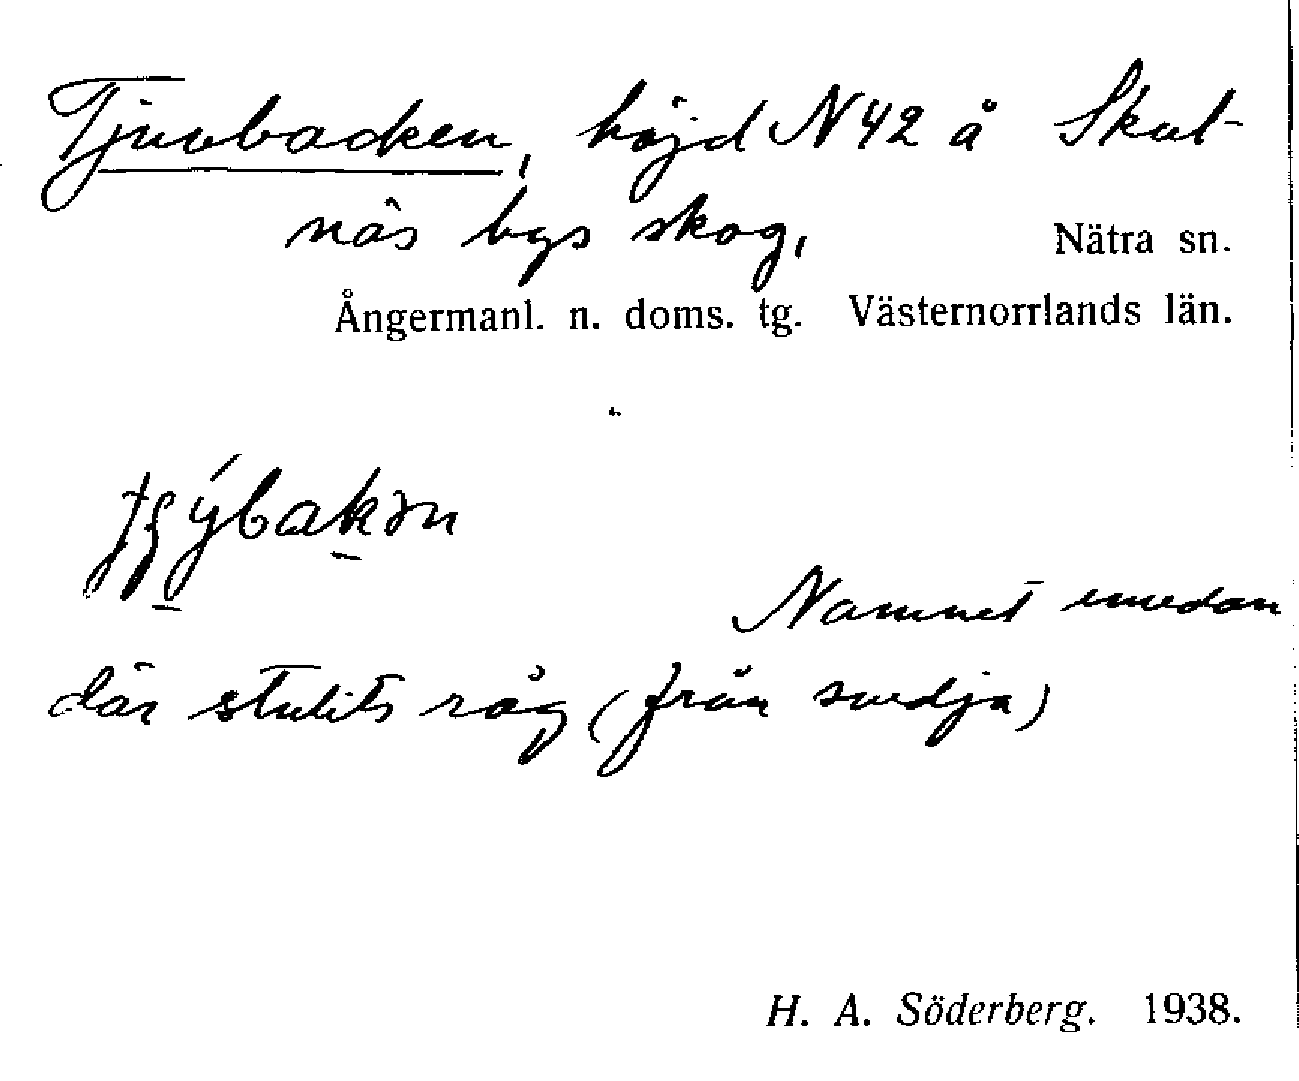 Tjuvbacken, höjd N42 å Skul-
näs bys skog, Nätra sn.
Ångermanl. n. doms. tg. Västernorrlands län.
Namnet emedan
där stulits råg (från svedja)
H. A. Söderberg. 1938.